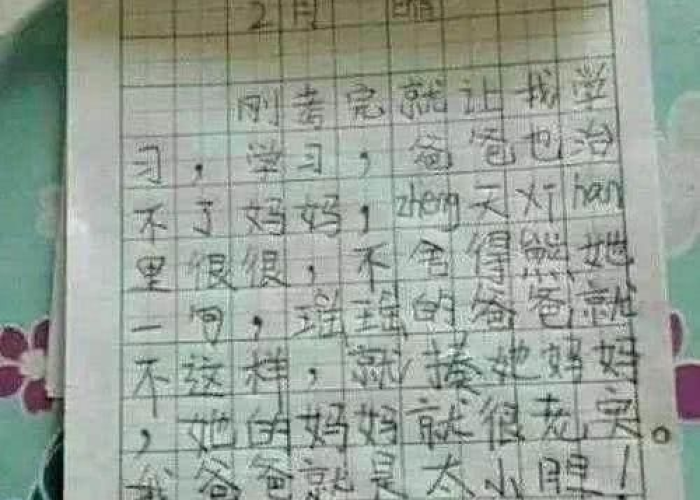 2月 晴
刚考完就让我学
习，学习，爸爸也治
不了妈妈，zheng天灯han
里很很，不舍得熊她
一句，瑶瑶的爸爸就
不这样，就揍她妈妈
，她的妈妈就很老实。
我爸爸就是太小胆！